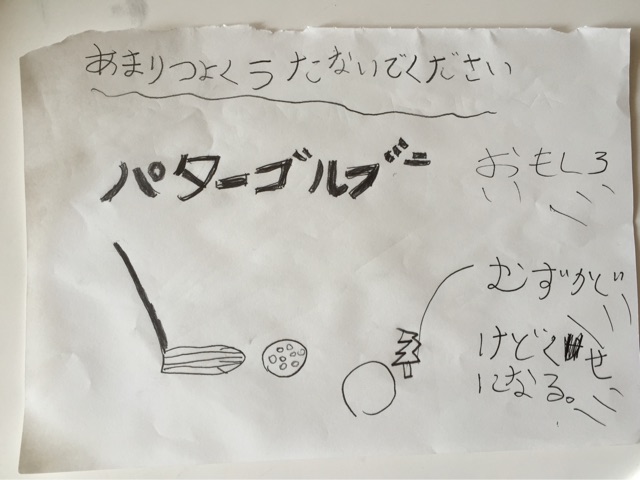 あまりつよくうたないでください
パターゴルブー
おもしろ
い
むずかしい
けどくせ
になる。